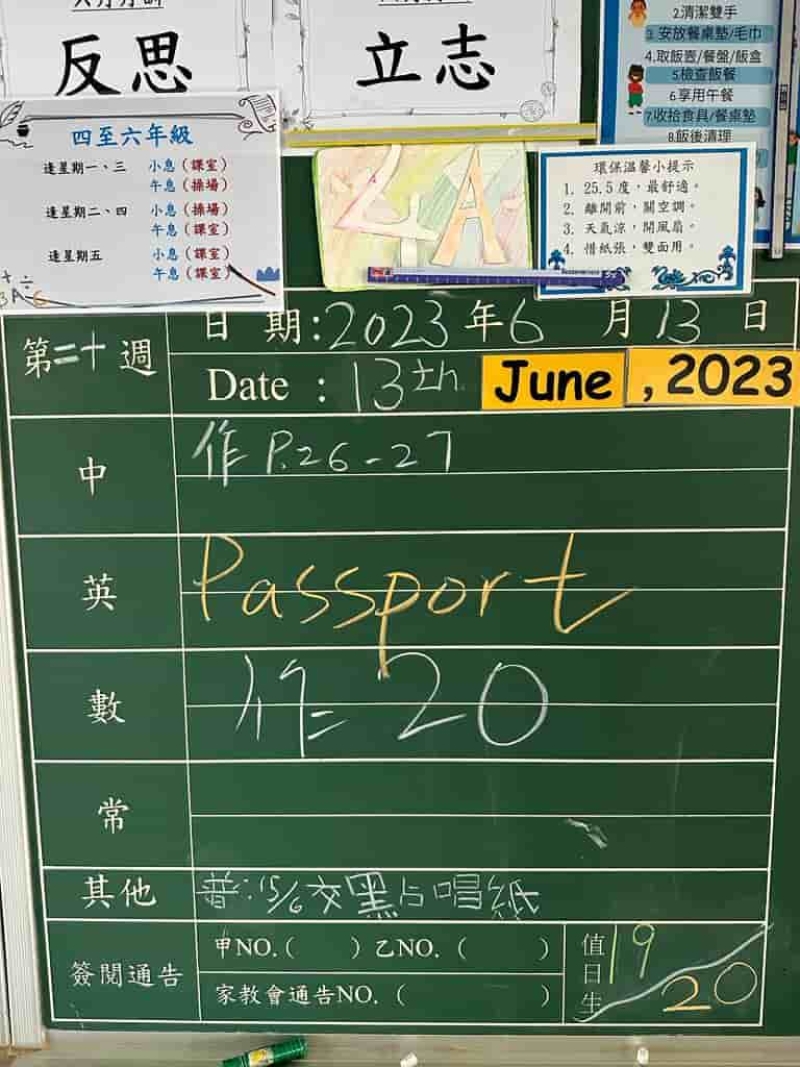 反思
立志
2.清潔雙手
3.安放餐桌墊/毛巾
4.取飯壼/餐盤/飯盒
5.檢查飯餐
6.享用午餐
7.收拾食具/餐桌墊
8.飯後清理
四至六年級
逢星期一、三 小息(課室)
午息(操場)
逢星期二、四 小息(操場)
午息(課室)
逢星期五 小息(課室)
午息(課室)
4A
環保溫馨小提示
1. 25.5度，最舒適。
2. 離開前，關空調。
3. 天氣涼，開風扇。
4. 惜紙張，雙面用。
第二十週
日期:2023年6月13日
Date : 13th June, 2023
中
作 P.26-27
英
Passport
數
作= 20
常
其他
普:15/6交黑占唱紙
簽閱通告
申NO.( )乙NO.( )
家教會通告NO.( )
值日生
19
20